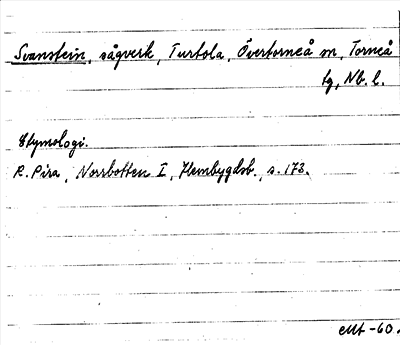 Svanstein, sågverk, Turtola, Övertorneå sn, Torneå
tg, Nb. l.
Etymologi.
R. Pira, Norrbotten I, Hembygdsb., s. 173.